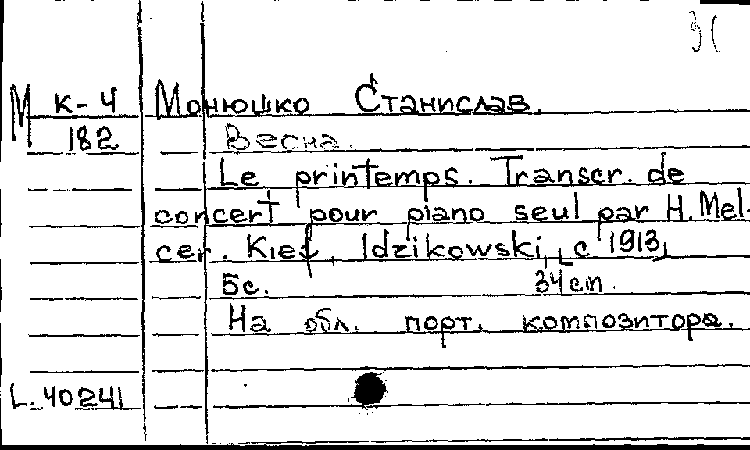 31
М К-4 Монюшко Станислав.
182 Весна.
Le printemps. Transcr. de
concert pour piano seul par H. Mel-
cer. Kief, Idzikowski, [c 1913]
5с. 34 cm.
На обл. порт. композитора.
L. 40241